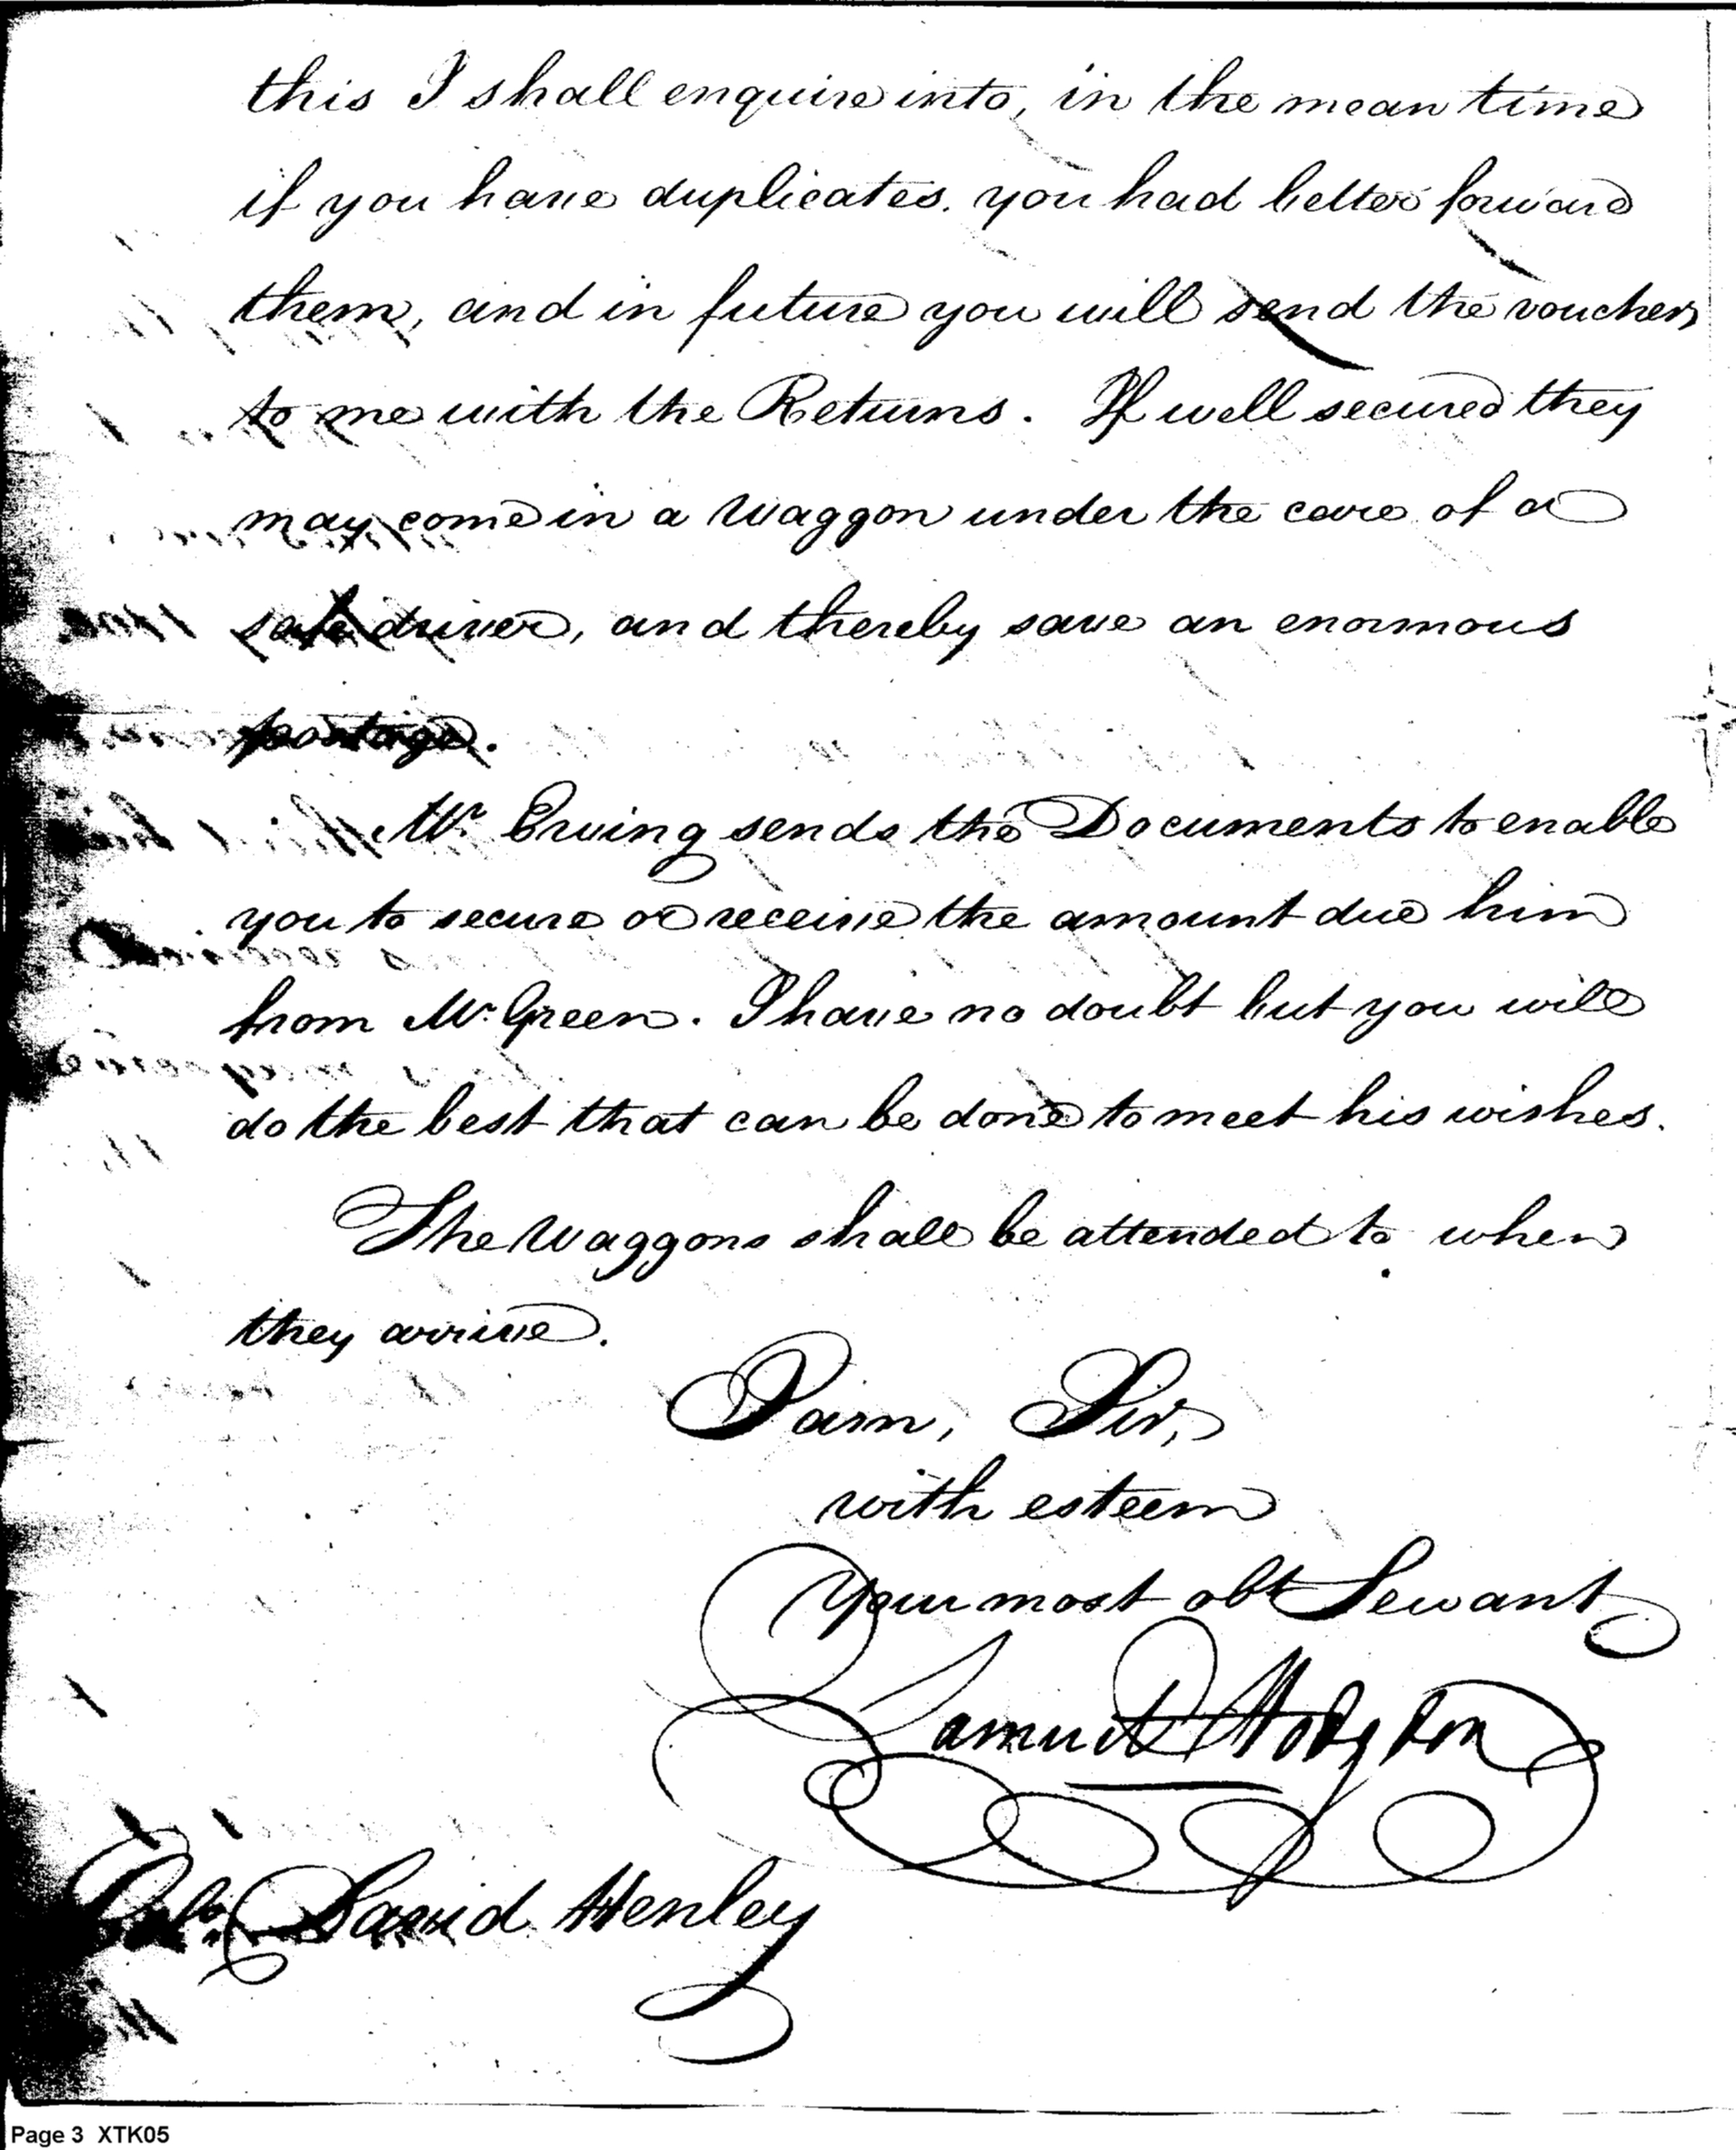 this I shall enquire into, in the mean time
if you have duplicates, you had better forward
them, and in future you will send the vouchers
to me with the Returns. If well secured they
may come in a Waggon under the care of a
safe driver, and thereby save an enormous
postage.
Mr. Ewing sends the Documents to enable
you to secure or receive the amount due him
from Mr. Green. I have no doubt but you will
do the best that can be done to meet his wishes.
The Waggons shall be attended to when
they arrive.
I am, Sir,
with esteem
Your most obt Servant
Samuel Hodgdon
Colo. David Henley
Page 3 XTK05